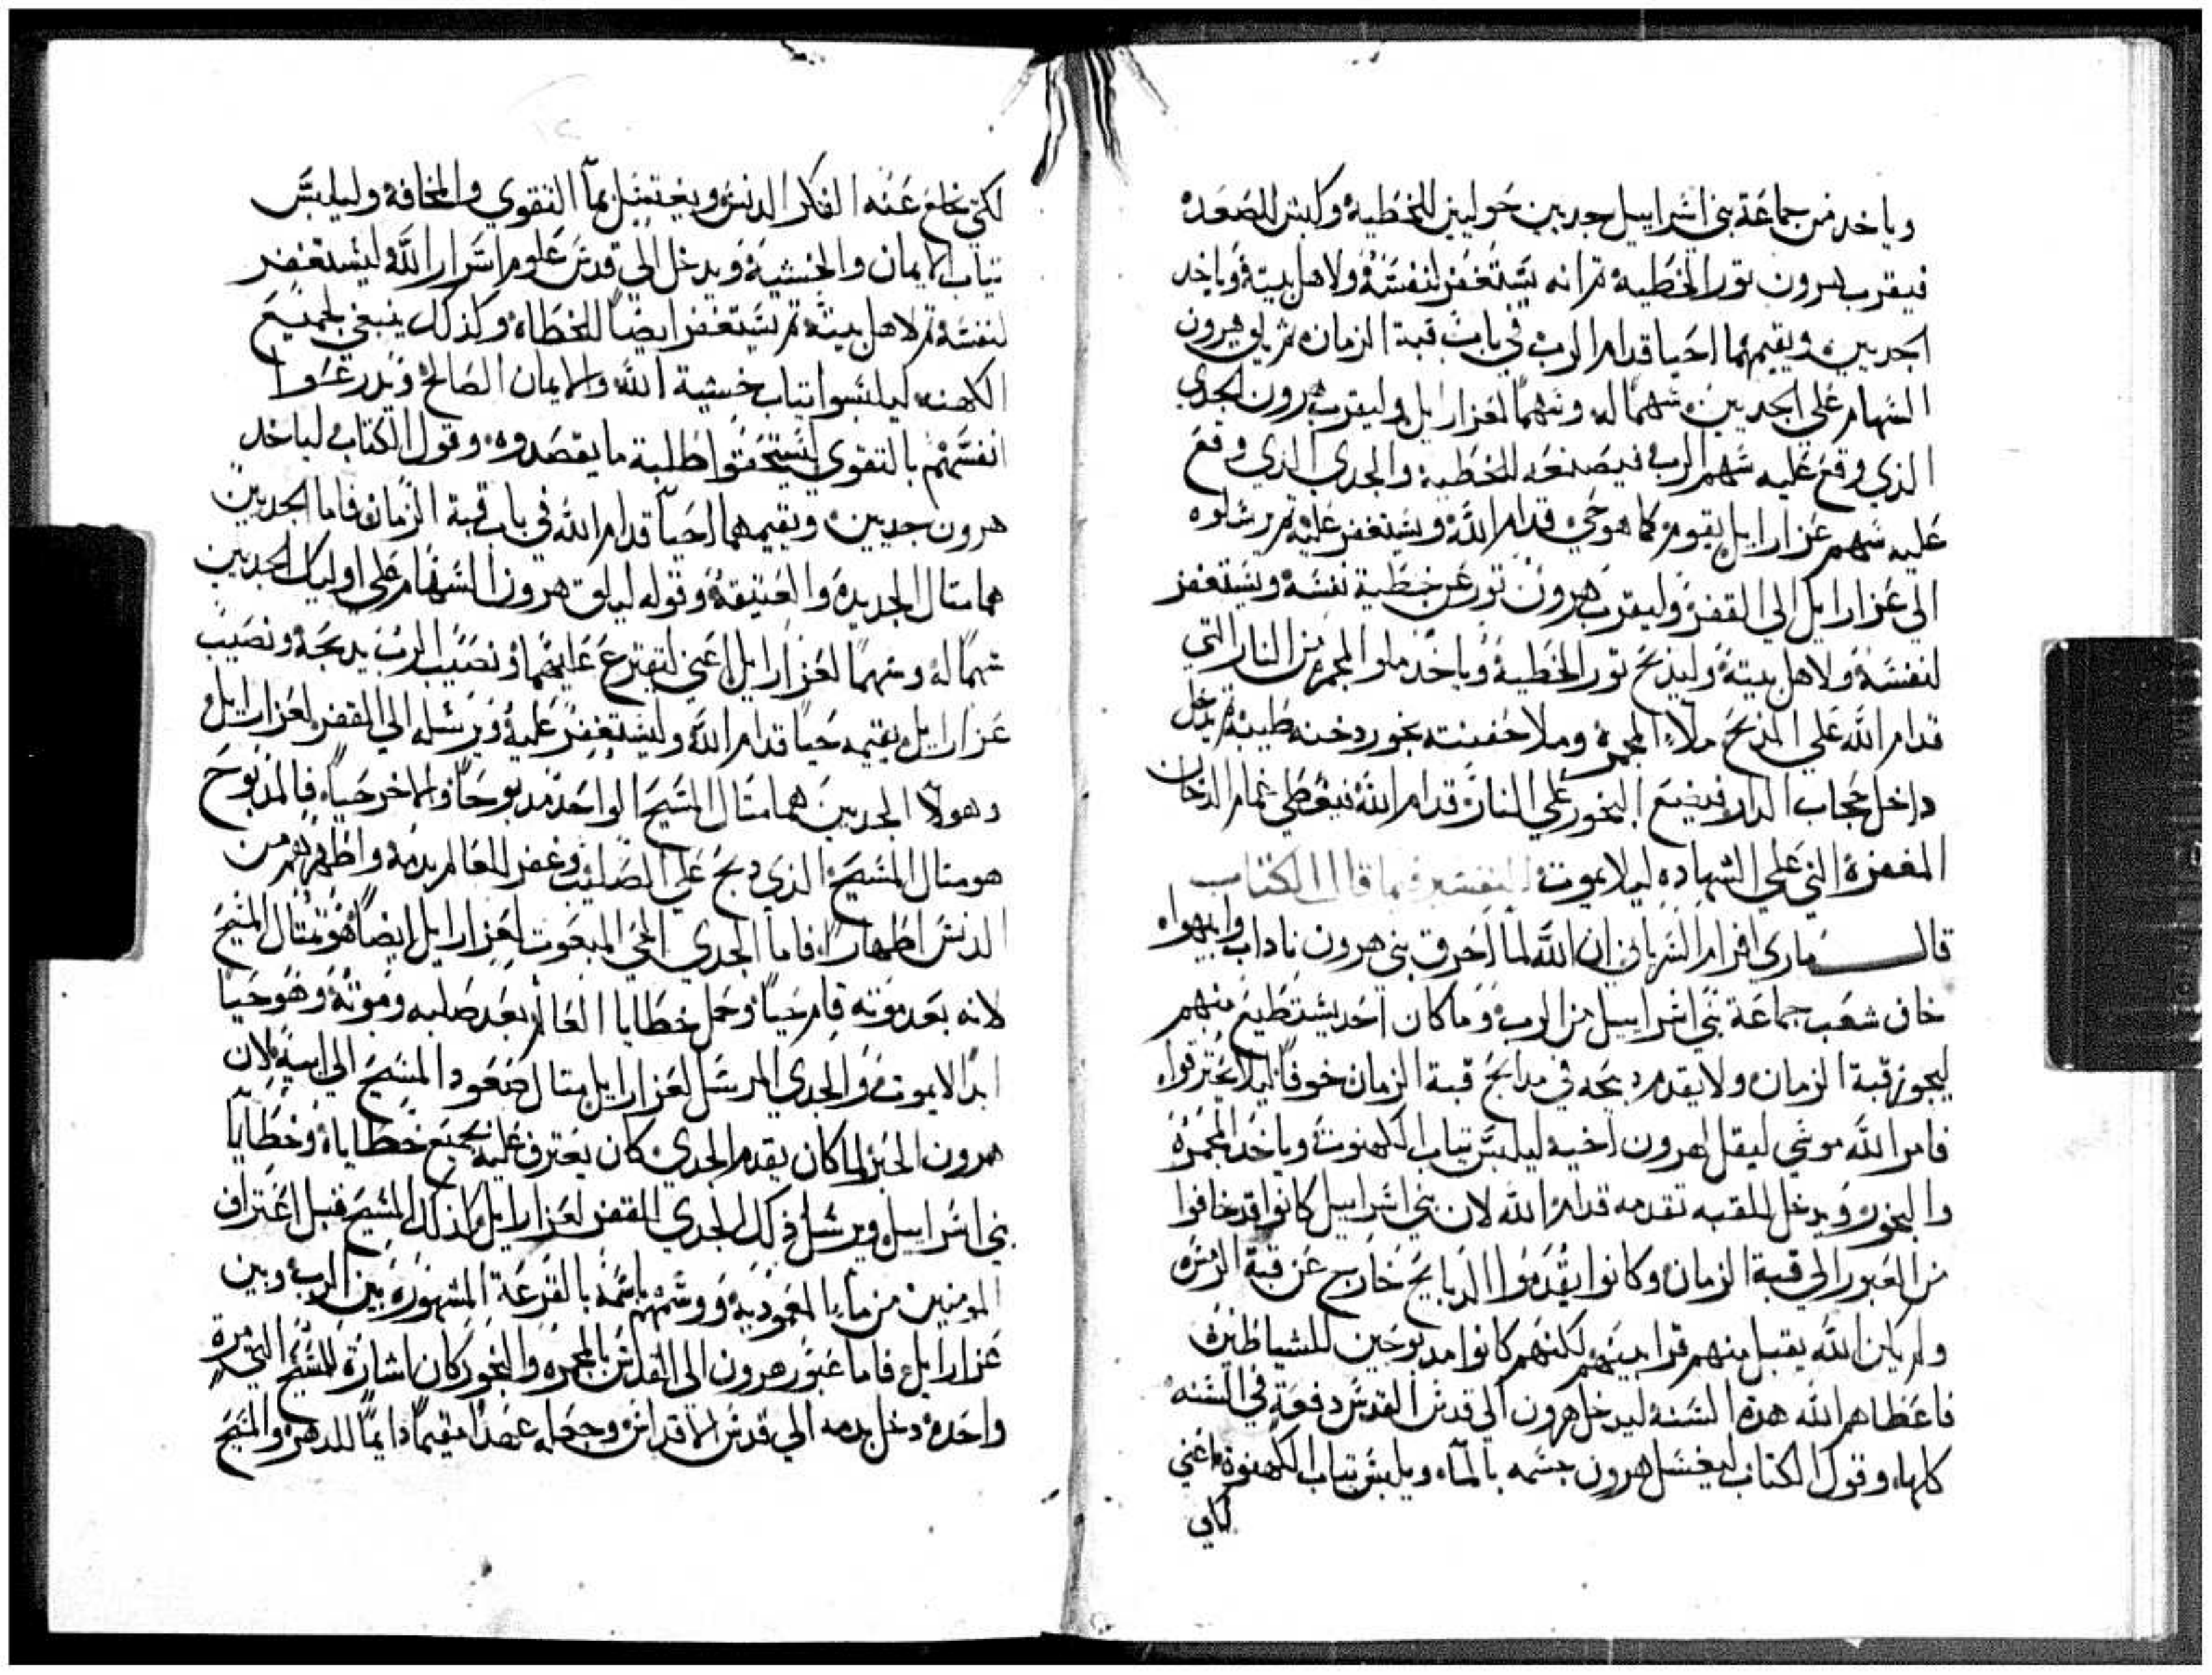 وياخد من جماعة بني اسراييل جديين حوليين للخطية وكبش للصعده
فيقرب هرون تور الخطية تم انه يستغفر لنفسه ولاهل بيته وياخد
الجديين ويقيمهما احيا قدام الرب في باب قبة الزمان ثم يلقي هرون
السهام علي الجديين سهما له وسهما لعزازايل وليقرب هرون الجدي
الذي وقع عليه سهم الرب فيصنعه للخطية والجدي الذي وقع
عليه سهم عزازايل يقومه كما هو حي قدام الله ويستغفر عليه تم يرسلوه
الي عزازايل الي القفر وليقرب هرون تور عن خطية نفسه ويستغفر
لنفسه ولاهل بيته وليدبح تور الخطية وياخد ملو المجمره من النار التي
قدام الله علي المدبح ملاء المجمرة وملا حفنته بخور دخنه طيبة تم يدخل
داخل حجاب الدار فيضع البخور علي النار قدام الله فيغطي غمام الدخان
المغفرة التي علي الشهاده ليلا يموت التفسير فيما قال الكتاب
قال ماري افرام السرياني ان الله لما احرق بني هرون ناداب وابيهواه
خاف شعب جماعة بني اسراييل من الرب وما كان احد يستطيع منهم
ليجوز قبة الزمان ولا يقدم دبحه في مدابح قبة الزمان خوفا ليلا يحترقوا
فامر الله موسي ليقل لهرون اخيه ليلبس تياب الكهنوت وياخد المجمرة
والبخور ويدخل للقبه تقدمه قدام الله لان بني اسراييل كانوا قد خافوا
من العبور الي قبة الزمان وكانوا يقدموا الدبايح خارج عن قبة الزمن
ولم يكن الله يقبل منهم قرابينهم لكنهم كانوا مدبوحين للشياطين
فاعطاهم الله هدة السنة ليدخل هرون الي قدس القدس دفعة في السنه
كلها وقول الكتاب ليغسل هرون جسمه بالماء ويلبس تياب الكهنوة اعني
لكي
لكي يخلع عنه الفكر الدنس ويغتسل بما التقوي والمخافة وليلبس
تياب الايمان والخشية ويدخل الي قدس علوم اسرار الله ليستغفر
لنفسه تم لاهل بيته تم يستغفر ايضا للخطاه وكذلك ينبغي لجميع
الكهنه ليلبسوا تياب خشية الله والايمان الصالح ويدرعوا
انفسهم بالتقوي ليستحقوا طلبة ما يقصدوه وقول الكتاب لياخد
هرون جديين ويقيمهما احيا قدام الله في باب قبة الزمان فاما الجديين
هما متال الجديدة والعتيقة وقوله ليلق هرون السهام علي اوليك الجديين
سهما له وسهما لعزازايل اعني لتقترع عليهما ونصيب الرب يدبحه ونصيب
عزازايل يقيمه حيا قدام الله وليستغفر عليه ويرسله الي القفر لعزازايل
وهولا الجديين هما متال المسيح الواحد مدبوحا والاخر حيا فالمدبوح
هو متال المسيح الذي دبح علي الصليب وغفر للعالم بدمه واطهرهم من
الدنس اطهارا فاما الجدي الحي المبعوت لعزازايل ايضا هو متال المسيح
لانه بعد موته قام حيا وحمل خطايا العالم بعد صلبه وموته وهو حيا
ابدا لا يموت والجدي المرسل لعزازايل متال صعود المسيح الي ابيه لان
هرون الحبر لما كان يقدم الجدي كان يعترف عليه بجميع خطاياه وخطايا
بني اسراييل ويرسل دلك الجدي للقفر لعزازايل كذلك المسيح قبل اعتراف
المومنين من ماء المعمودية ووسمهم باسمه بالقرعة المشهورة بين الرب وبين
عزازايل فاما عبور هرون الي القدس بالمجمره والبخور كان اشارة للمسيح التي مرة
واحدة دخل بدمه الي قدس الاقداس وجعله عهدا مقيما دايما للدهر والمسيح